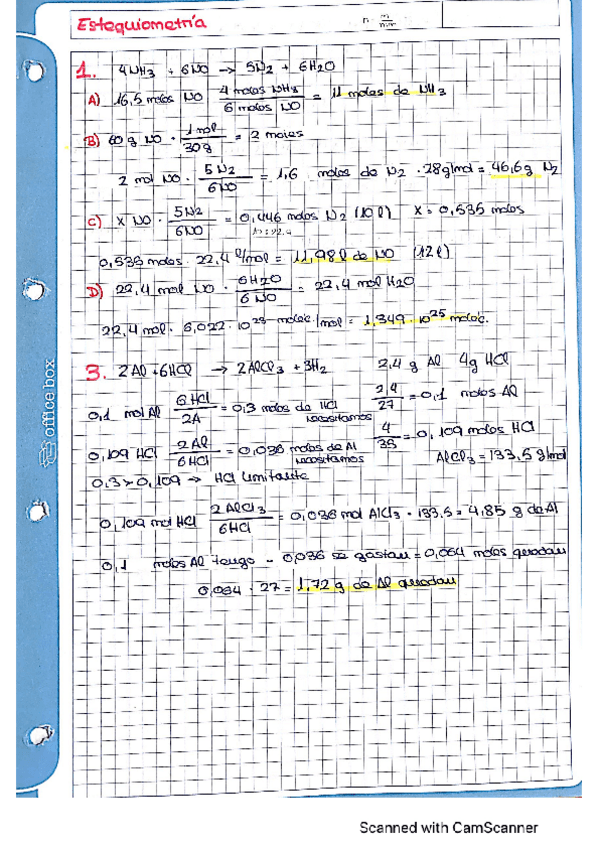 Estequiometría n = m/mm
1. 4NH3 + 6NO → 5N2 + 6H2O
A) 16,5 moles NO 4 moles NH3 / 6 moles NO = 11 moles de NH3
B) 60 g NO · 1 mol / 30 g = 2 moles
2 mol NO · 5 N2 / 6 NO = 1,6 moles de N2 · 28 g/mol = 46,6 g N2
C) X NO · 5 N2 / 6 NO = 0,446 moles N2 (10 l) X = 0,535 moles
0,535 moles · 22,4 l/mol = 11,98 l de NO (12 l)
D) 22,4 mol NO · 6 H2O / 6 NO = 22,4 mol H2O
22,4 mol · 6,022 · 10^23 molec/mol = 1,349 · 10^25 molec.
3. 2Al + 6HCl → 2AlCl3 + 3H2 2,4 g Al 4g HCl
0,1 mol Al 6 HCl / 2A = 0,3 moles de HCl necesitamos 2,4 / 27 = 0,1 moles Al
0,109 HCl 2 Al / 6 HCl = 0,036 moles de Al necesitamos 4 / 35 = 0,109 moles HCl
AlCl3 = 133,5 g/mol
0,3 > 0,109 → HCl limitante
0,109 mol HCl 2 AlCl3 / 6HCl = 0,036 mol AlCl3 · 133,5 = 4,85 g de Al
0,1 moles Al tengo - 0,036 se gastan = 0,064 moles quedan
0,064 · 27 = 1,72 g de Al quedan
office box
Scanned with CamScanner